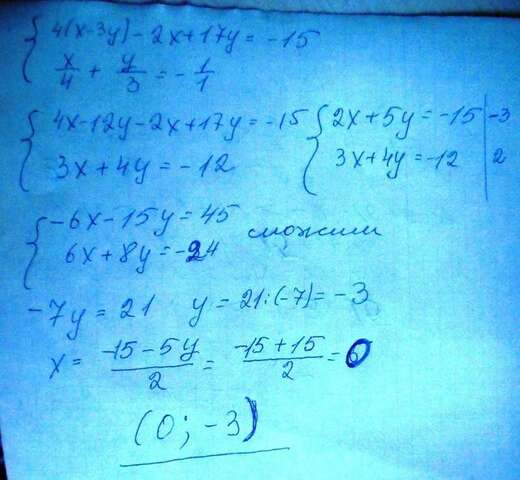 4(x-3y)-2x+17y=-15
x/4 + y/3 = -1/1
4x-12y-2x+17y=-15
3x+4y=-12
2x+5y=-15 | -3
3x+4y=-12 | 2
-6x-15y=45
6x+8y=-24
сложим
-7y=21 y=21:(-7)=-3
x= (-15-5y)/2 = (-15+15)/2 =0
(0; -3)